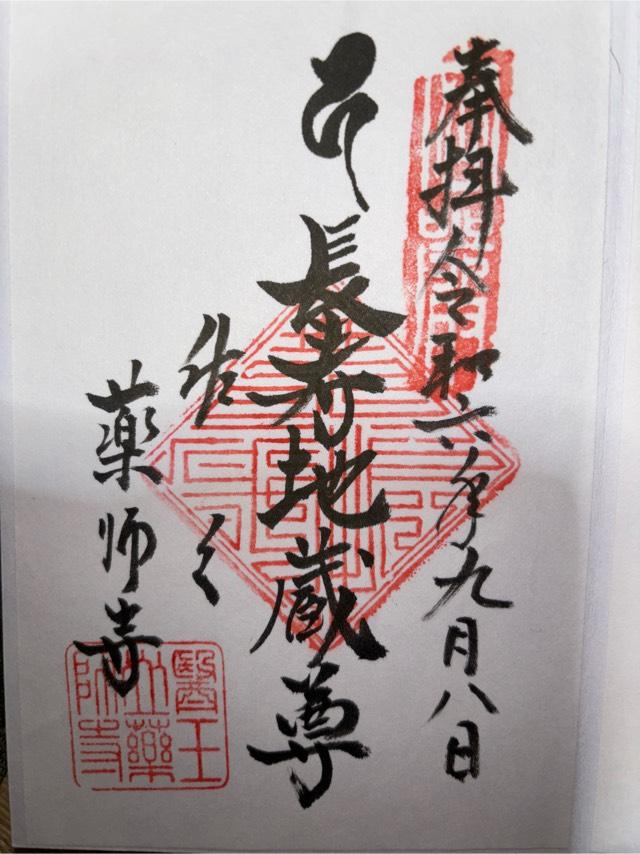 奉拝 令和六年九月八日
長寿地蔵尊
薬師寺
醫王
山藥
師寺